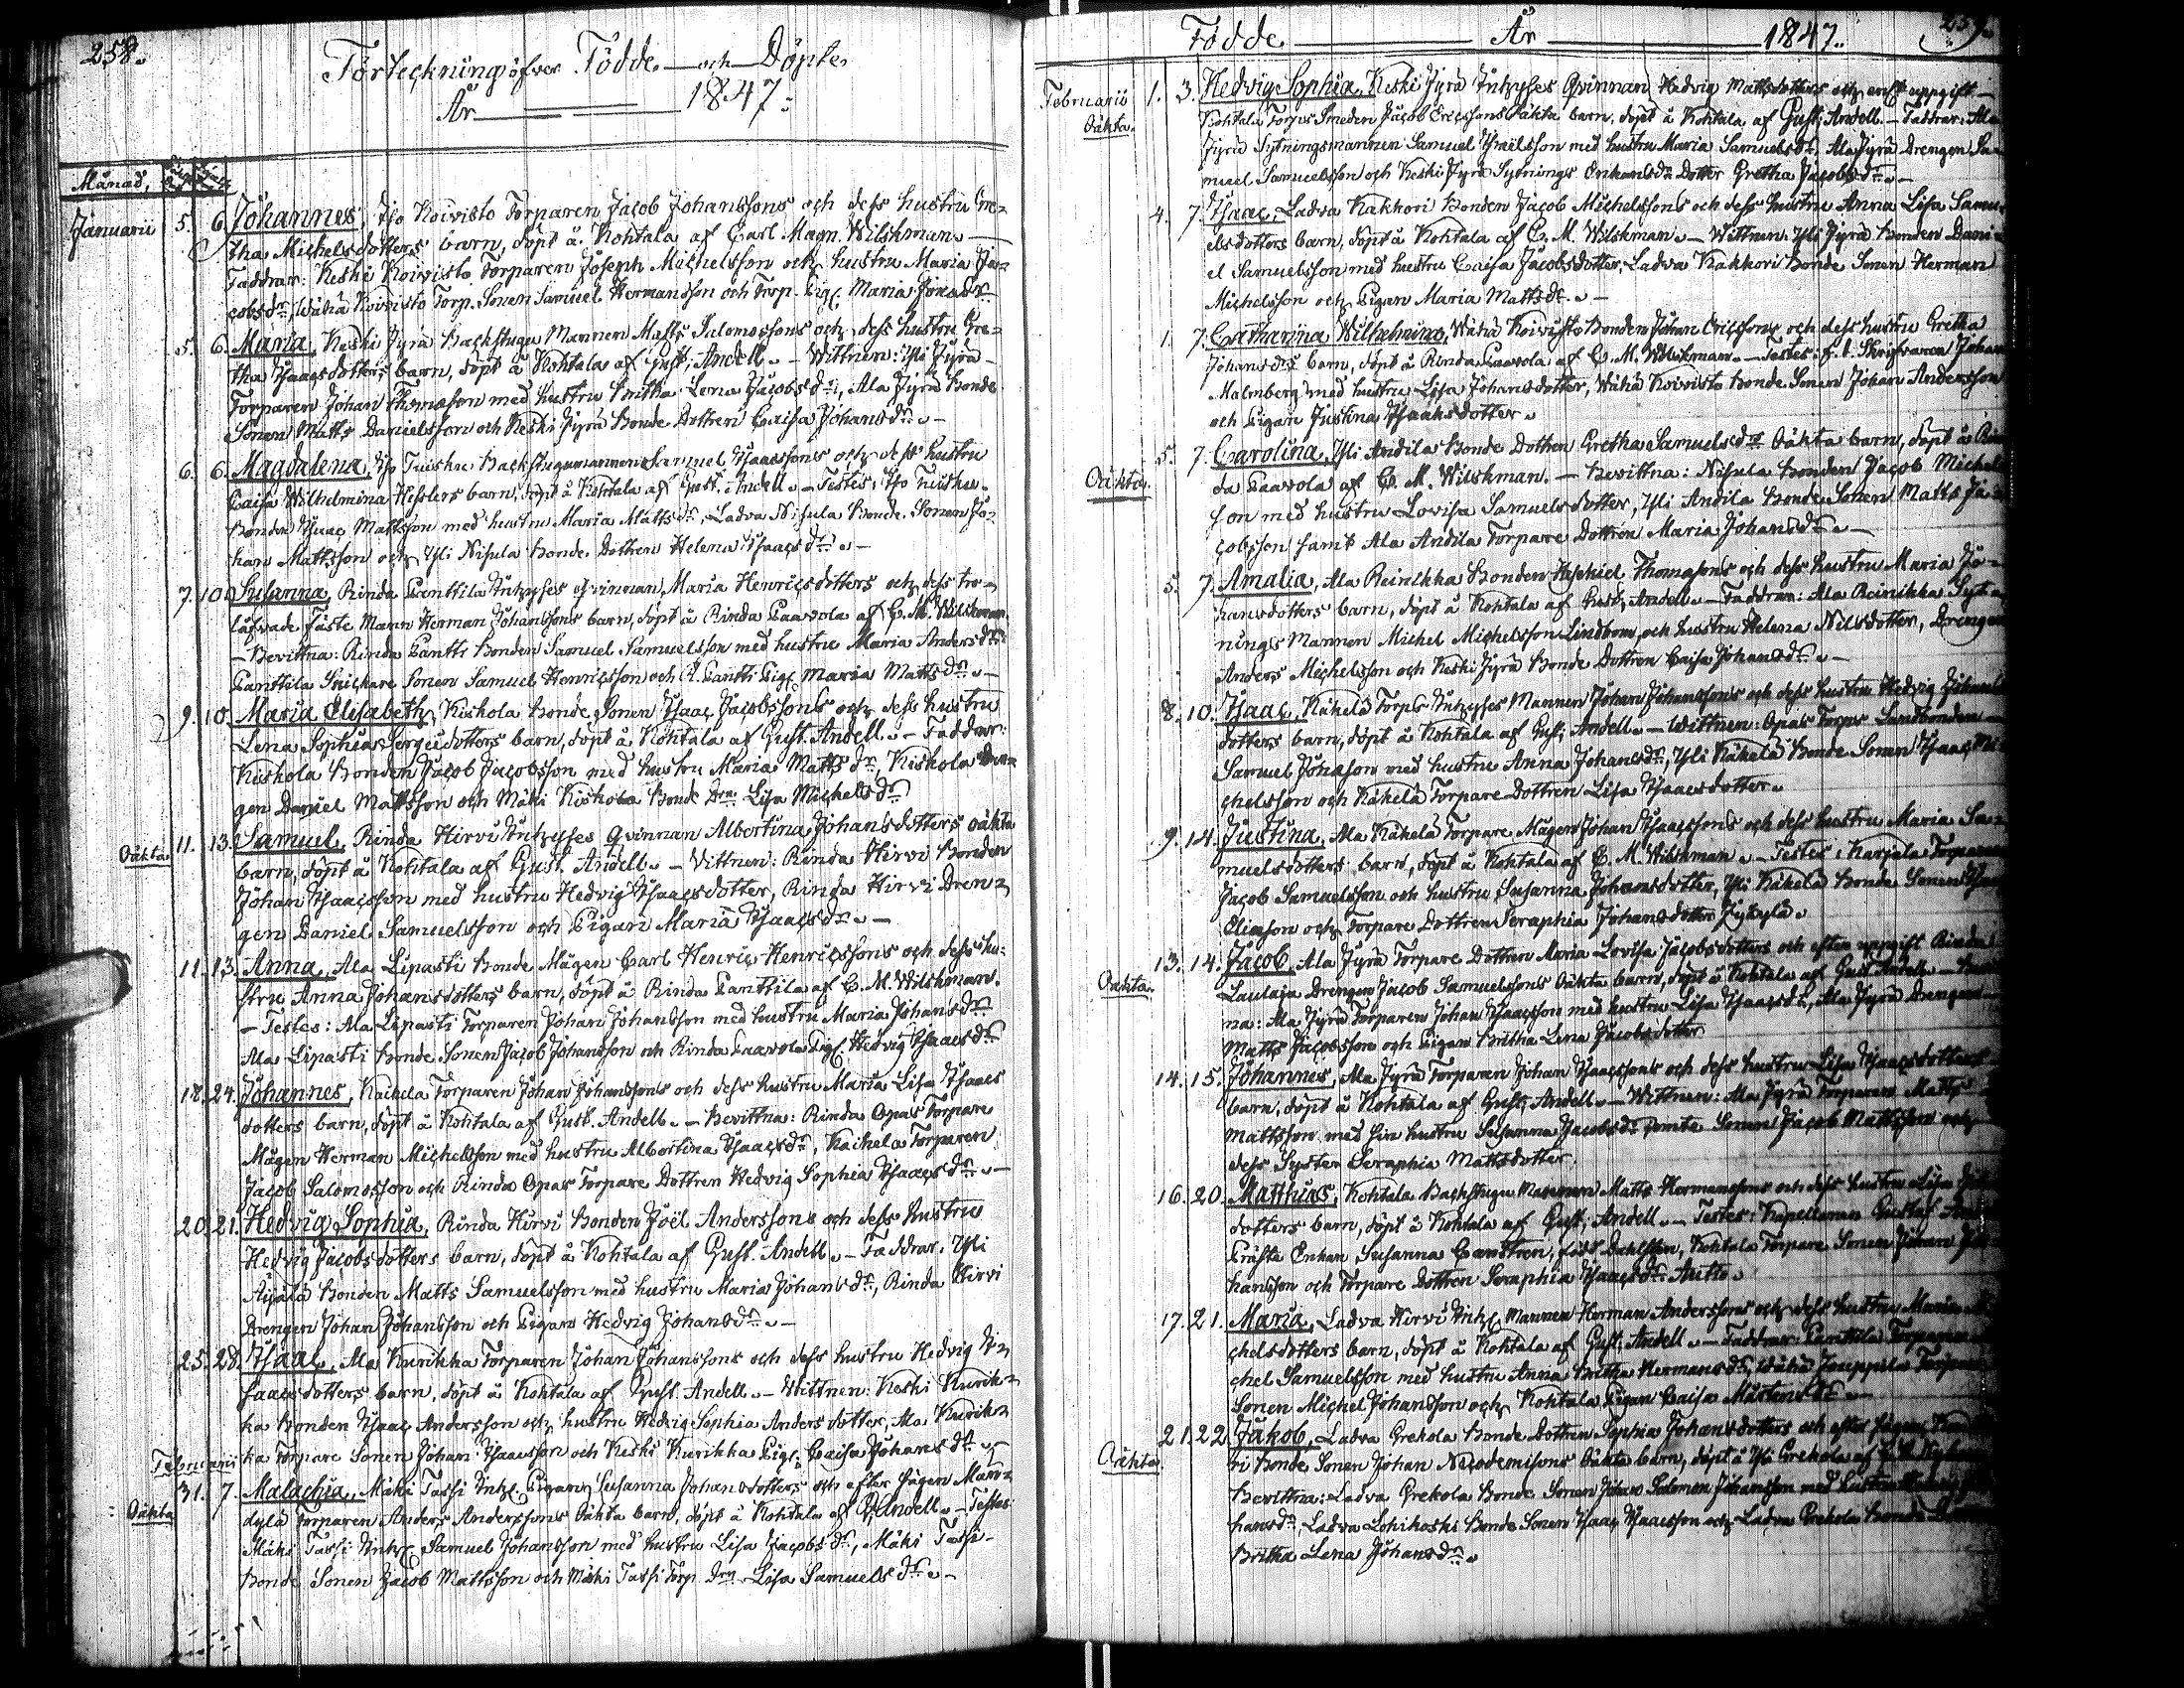 258.
Förteckning öfver Födde och Döpte
År 1847.
Månad,
Januarii 5. 6. Johannes, Iso Koivisto Torparen Jacob Johanssons och dess hustru Gre-
tha Michelsdotters barn, döpt å Kohtala af Carl Magn. Wilskman.
Faddrar: Keski Koivisto Torparen Joseph Michelsson och hustru Maria Ja-
cobsdr, Wähä Koivisto Torp. Sonen Samuel Hermansson och Torp. Pig. Maria Jonasdr
5. 6. Maria, Keski Jyrä Backstugu Mannen Matts Salomossons och dess hustru Gre-
tha Isaacsdotters barn, döpt å Kohtala af Gust. Andell. - Wittnen: Yli Jyrä
Torparen Johan Thomasson med hustru Britha Lena Jacobsdr, Ala Jyrä Bonde
Sonen Matts Danielsson och Keski Jyrä Bonde Dottren Caisa Johansdr. -
6. 6. Magdalena, Iso Tuisku Backstugumannen Samuel Isaacssons och dess hustru
Caisa Wilhelmina Hesslers barn, döpt å Kohtala af Gust. Andell. - Testes: Iso Tuisku
Bonden Isaac Mattsson med hustru Maria Mattsdr, Ladva Nisula Bonde Sonen Jo-
han Mattsson och Yli Nisula Bonde Dottren Helena Isaacsdr. -
7. 10. Susanna, Rinda Panttila Inhyses qvinnan Maria Henricsdotters och dess tro-
låfvade Fäste Mann Herman Johanssons barn, döpt å Rinda Paavola af C. M. Wilskman.
- Bevittna: Rinda Pantti Bonden Samuel Samuelsson med hustru Maria Andersdr
Panttila Snickare Sonen Samuel Henricsson och R. Pantti Pig. Maria Mattsdr. -
9. 10. Maria Elisabeth, Kiskola Bonde Sonen Isaac Jacobssons och dess hustru
Lena Sophia Sergeidotters barn, döpt å Kohtala af Gust. Andell. - Faddrar:
Kiskola Bonden Jacob Jacobsson med hustru Maria Mattsdr, Kiskola Dren-
gen Daniel Mattsson och Mäki Kiskola Bonde Drn Lisa Michelsdr
Oäkta 11. 13. Samuel, Rinda Hirvi Inhyses Qvinnan Albertina Johansdotters oäkta
barn, döpt å Kohtala af Gust. Andell. - Vittnen: Rinda Hirvi Bonden
Johan Isaacsson med hustru Hedvig Isaacsdotter, Rinda Hirvi Dren-
gen Daniel Samuelsson och Pigan Maria Isaacsdr. -
11. 13. Anna, Ala Lipasti Bonde Mågen Carl Henric Henricssons och dess hu-
stru Anna Johansdotters barn, döpt å Rinda Panttila af C. M. Wilskman.
- Testes: Ala Lipasti Torparen Johan Johansson med hustru Maria Johansdr
Ala Lipasti Bonde Sonen Jacob Johansson och Rinda Paavola Pig. Hedvig Isaacsdr
18. 24. Johannes, Kaihela Torparen Johan Johanssons och dess hustru Maria Lisa Isaacs
dotters barn, döpt å Kohtala af Gust. Andell. - Bevittna: Rinda Opas Torpare
Mågen Herman Michelsson med hustru Albertina Isaacsdr, Kaihela Torparen
Jacob Salomosson och Rinda Opas Torpare Dottren Hedvig Sophia Isaacsdr. -
20. 21. Hedvig Sophia, Rinda Hirvi Bonden Joël Anderssons och dess hustru
Hedvig Jacobsdotters barn, döpt å Kohtala af Gust. Andell. - Faddrar: Yli
Äijälä Bonden Matts Samuelsson med hustru Maria Johansdr, Rinda Hirvi
Drengen Johan Johansson och Pigan Hedvig Johansdr. -
25. 28. Isaac, Ala Kurikka Torparen Johan Johanssons och dess hustru Hedvig I-
saacsdotters barn, döpt å Kohtala af Gust. Andell. - Wittnen: Keski Kurik-
ka Bonden Isaac Andersson och hustru Hedvig Sophia Anders dotter, Ala Kurik-
ka Torpare Sonen Johan Isaacsson och Keski Kurikka Pig. Caisa Johansdr. -
Februarii
Oäkta 31. 7. Malachia, Mäki Tassi Inh. Pigan Susanna Johansdotters och efter sägen Man-
dyla Torparen Anders Anderssons Oäkta barn, döpt å Kohtala af G. Andell. - Testes
Mäki Tassi Inh. Samuel Johansson med hustru Lisa Jacobsdr, Mäki Tassi
Bonde Sonen Jacob Mattsson och Mäki Tassi Torp. Drn Lisa Samuelsdr. -
Födde År 1847. 259.
Februarii 1. 3. Hedvig Sophia, Keski Jyrä Inhyses Qvinnan Hedvig Mattsdotters och enl. uppgift
Oäkta. Kohtala Torps Smeden Jacob Ericssons Oäkta barn, döpt å Kohtala af Gust. Andell. - Faddrar: Ala
Jyrä Sytningsmannen Samuel Isralsson med hustru Maria Samuelsdr, Ala Jyrä Drengen Sa-
muel Samuelsson och Keski Jyrä Sytnings Enkans Dotter Gretha Jacobsdr. -
4. 7. Isaac, Ladva Kakkori Bonden Jacob Michelssons och dess hustru Anna Lisa Samu-
elsdotters barn, döpt å Kohtala af C. M. Wilskman. - Wittnen: Yli Jyrä Bonden Dani-
el Samuelsson med hustru Caisa Jacobsdotter, Ladva Kakkori Bonde Sonen Herman
Michelsson och Pigan Maria Mattsdr. -
1. 7. Catharina Wilhelmina, Wähä Koivisto Bonden Johan Ericssons och dess hustru Gretha
Johansdrs barn, döpt å Rinda Paavola af C. M. Wilskman. - Testes: f. d. Skrifvaren Johan
Malmberg med hustru Lisa Johansdotter, Wähä Koivisto Bonde Sonen Johan Andersson
och Pigan Justina Isaaksdotter.
Oäkta. 5. 7. Carolina, Yli Andila Bonde Dottren Gretha Samuelsdrs Oäkta barn, döpt å Rin
da Paavola af C. M. Wilskman. - Bevittna: Nisula Bonden Jacob Michels
son med hustru Lovisa Samuelsdotter, Yli Andila Bonde Sonen Matts Ja-
cobsson samt Ala Andila Torpare Dottren Maria Johansdr. -
5. 7. Amalia, Ala Reinikka Bonden Hesekiel Thomassons och dess hustru Maria Jo-
hansdotters barn, döpt å Kohtala af Gust. Andell. - Faddrar: Ala Reinikka Syt-
nings Mannen Michel Michelsson Lindbom, och hustru Helena Nilsdotter, Drengen
Anders Michelsson och Keski Jyrä Bonde Dottren Caisa Johansdr. -
8. 10. Isaac, Käkelä Torps Inhyses Mannen Johan Johanssons och dess hustru Hedvig Johans
dotters barn, döpt å Kohtala af Gust. Andell. - Wittnen: Opas Torps Landbonden
Samuel Jonasson med hustru Anna Johansdr, Yli Käkelä Bonde Sonen Isaac Mi-
chelsson och Käkelä Torpare Dottren Lisa Isaacsdotter.
9. 14. Justina, Ala Käkelä Torpare Mågen Johan Isaacssons och dess hustru Maria Sa-
muelsdotters barn, döpt å Kohtala af C. M. Wilskman. - Testes: Karjala Torparen
Jacob Samuelsson och hustru Susanna Johansdotter, Yli Käkelä Bonde Sonen
Eliasson och Torpare Dottren Seraphia Johansdotter Jykylä.
Oäkta. 13. 14. Jacob, Ala Jyrä Torpare Dottren Maria Lovisa Jacobsdotters och efter uppgift Rinda
Laulaja Drengen Jacob Samuelssons Oäkta barn, döpt å Kohtala af Gust. Andell. -
na: Ala Jyrä Torparen Johan Isaacsson med hustru Lisa Isaacsdr, Ala Jyrä Drengen
Matts Jacobsson och Pigan Britha Lena Jacobsdotter
14. 15. Johannes, Ala Jyrä Torparen Johan Isaacssons och dess hustru Lisa Isaacsdotters
barn, döpt å Kohtala af Gust. Andell. - Wittnen: Ala Jyrä Torparen Matts
Mattsson med sin hustru Susanna Jacobsdr Sonen Jacob Mattsson och
dess Syster Seraphia Mattsdotter.
16. 20. Matthias, Kohtala Backstugu Mannen Matts Hermanssons och dess hustru Lisa
dotters barn, döpt å Kohtala af Gust. Andell. - Testes: Kapellanen Gustaf
Präste Enkan Susanna född Dahlsten, Kohtala Torpare Sonen Johan
hansson och Torpare Dottren Seraphia Isaacsdr Antto.
17. 21. Maria, Ladva Hirvi Inh. Mannen Herman Anderssons och dess hustru Maria Mi
chelsdotters barn, döpt å Kohtala af Gust. Andell. - Faddrar: Panttila Torparen
chel Samuelsson med hustru Anna Britha Hermansdr, Wähä Jouppila Torpare
Sonen Michel Johansson och Kohtala Pigan Caisa Mårtensdr. -
Oäkta 21. 22. Jakob, Ladva Grekola Bonde Dottren Sophia Johansdotters och efter sägen
ri Bonde Sonen Johan Nicodemisons Oäkta barn, döpt å Yli Grekola af
Bevittna: Ladva Grekola Bonde Sonen Johan Salomon Johansson med hustru
hansdr, Ladva Lohikoski Bonde Sonen Isaac Isaacsson och Ladva Grekola Bonde
Britha Lena Johansdr.